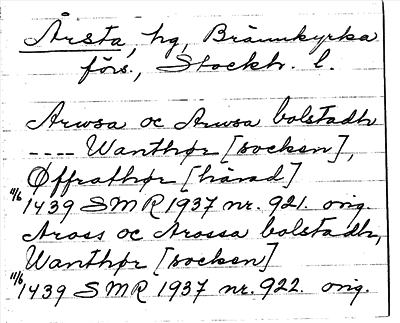 Årsta, hg, Brännkyrka
förs., Stockh. l.
Arwsa oc Arwsa bolstadh
---- Wanthør [socken],
Øffrathør [härad]
11/6 1439 SMR 1937 nr. 921. orig.
Aross oc Arossa bolstadh,
Wanthør [socken]
11/6 1439 SMR 1937 nr. 922. orig.